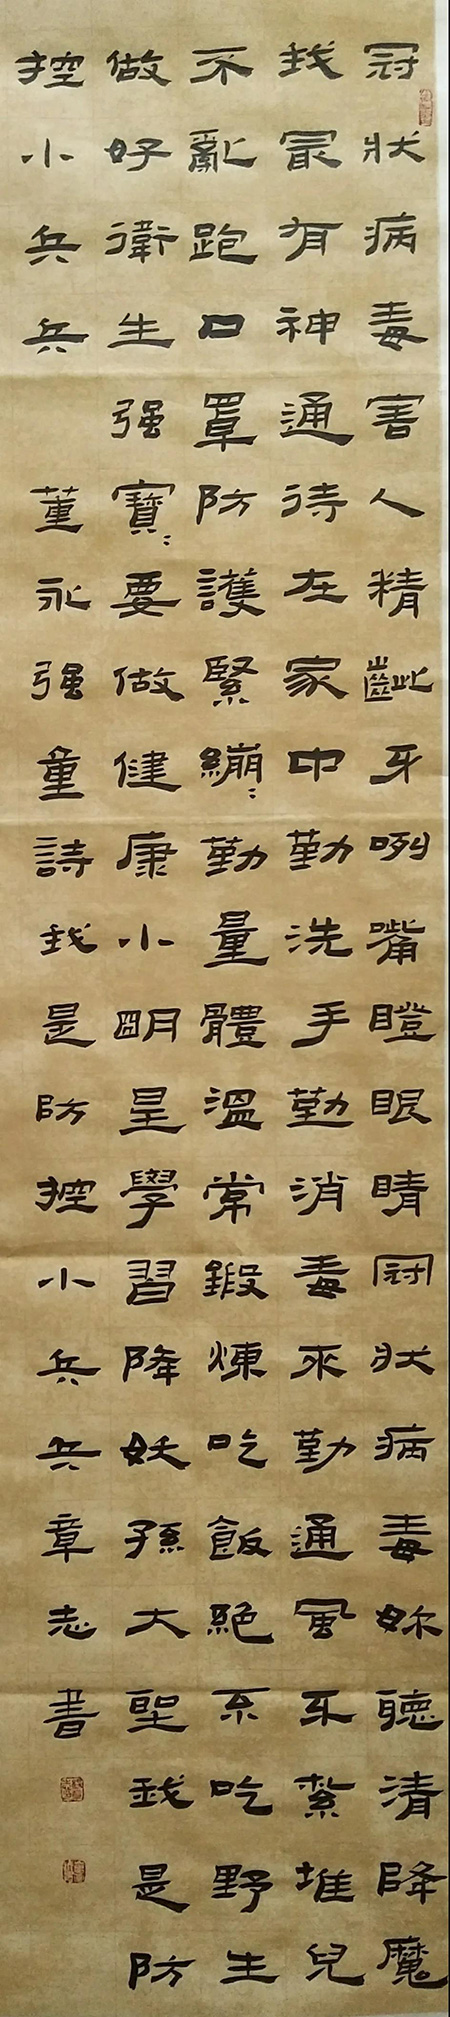 冠狀病毒害人精齜牙咧嘴瞪眼睛冠狀病毒妳聽清降魔
我最有神通待在家中勤洗手勤消毒來勤通風不紮堆兒
不亂跑口罩防護緊繃〻勤量體溫常鍛煉吃飯絕不吃野生
做好衛生强寶〻要做健康小明星學習降妖孫大聖我是防
控小兵兵 董永强童詩我是防控小兵兵章志書